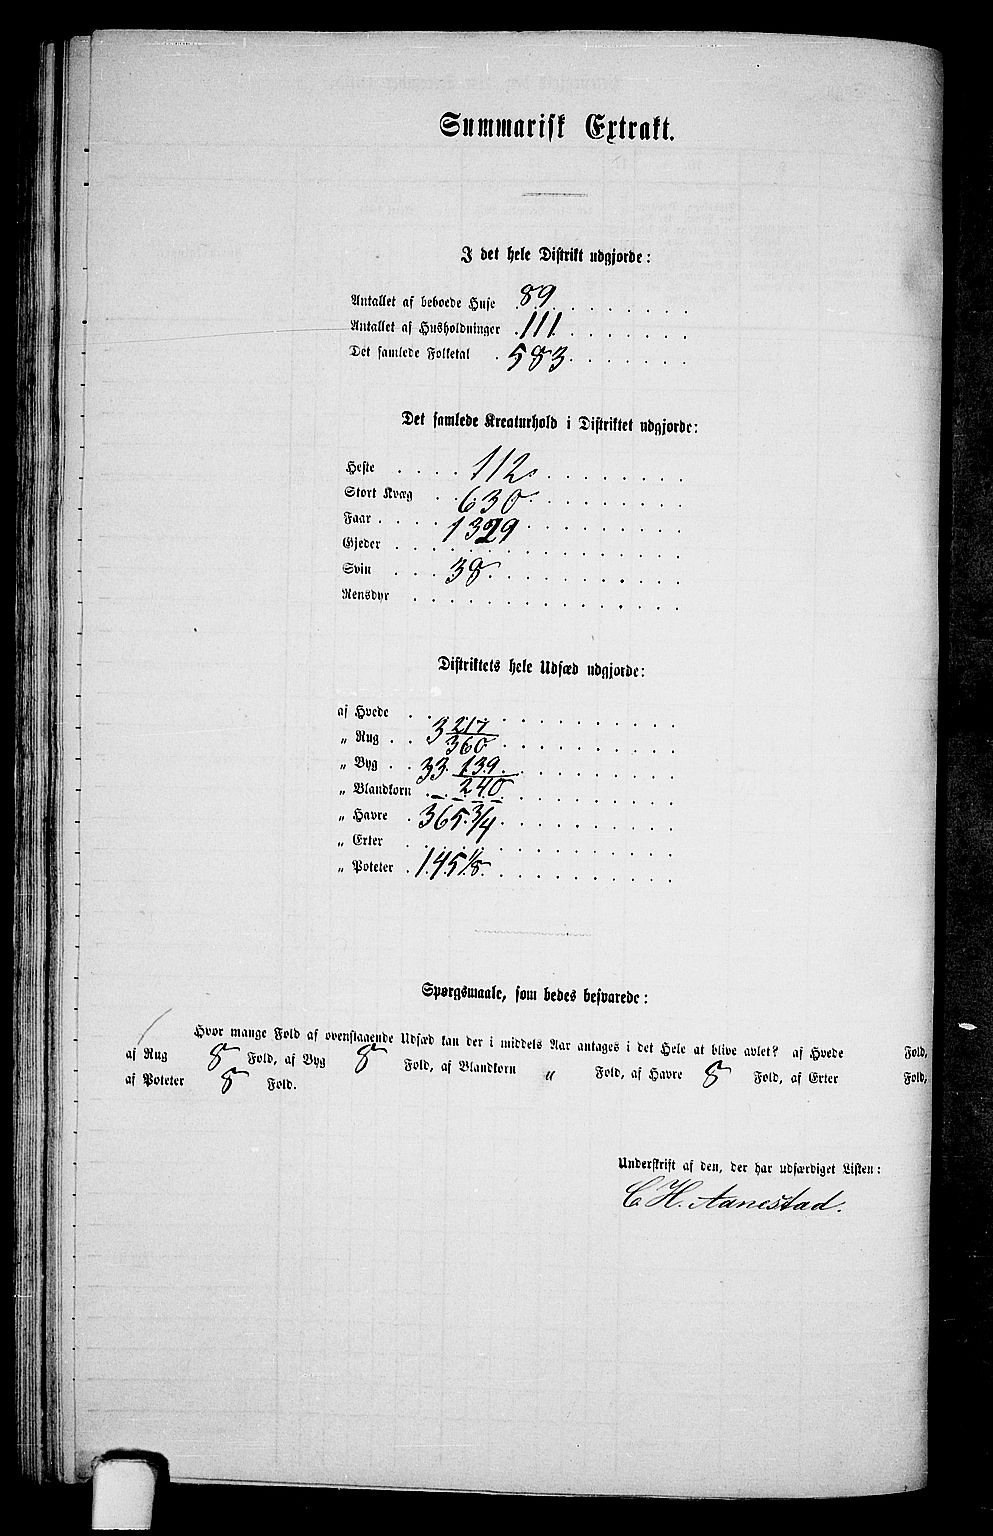 Summarisk Extrakt.
I det hele Distrikt udgjorde:
Antallet af beboede Huse 89
Antallet af Husholdninger 111
Det samlede Folketal 583
Det samlede Kreaturhold i Distriktet udgjorde:
Heste 112
Stort Kvæg 630
Faar 1329
Gjeder
Svin 38
Rensdyr
Distriktets hele Udsæd udgjorde:
af Hvede
„ Rug 3 217/360
„ Byg 33 139/240
„ Blandkorn
„ Havre 365 3/4
„ Erter
„ Poteter 145 1/8
Spørgsmaale, som bedes besvarede:
Hvor mange Fold af ovenstaaende Udsæd kan der i middels Aar antages i det Hele at blive avlet? af Hvede Fold,
af Rug 8 Fold, af Byg 8 Fold, af Blandkorn „ Fold, af Havre 8 Fold, af Erter Fold,
af Poteter 8 Fold.
Underskrift af den, der har udfærdiget Listen:
C H. Aanestad.